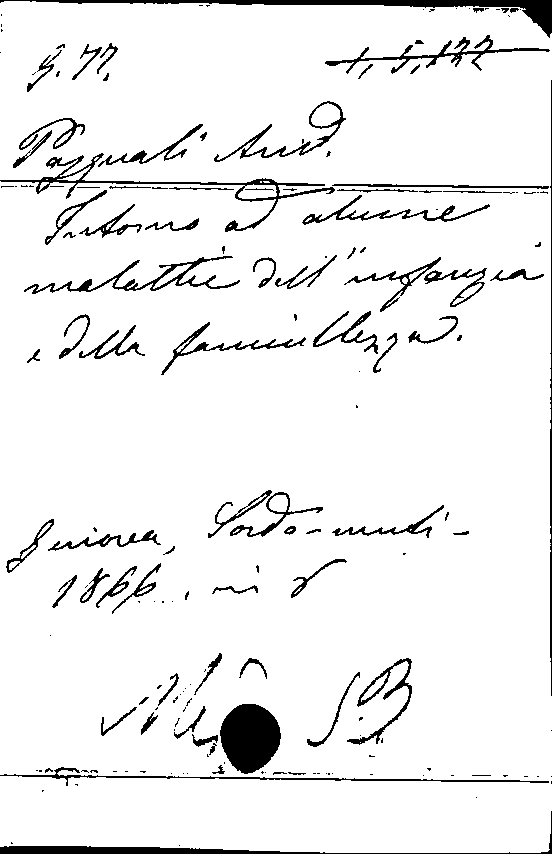 G. 77. 1, 5, 122
Pasquali And.
Intorno ad alcune
malattie dell'infanzia
e della fanciullezza.
Genova, Sordo-muti-
1866. in 8
S.B